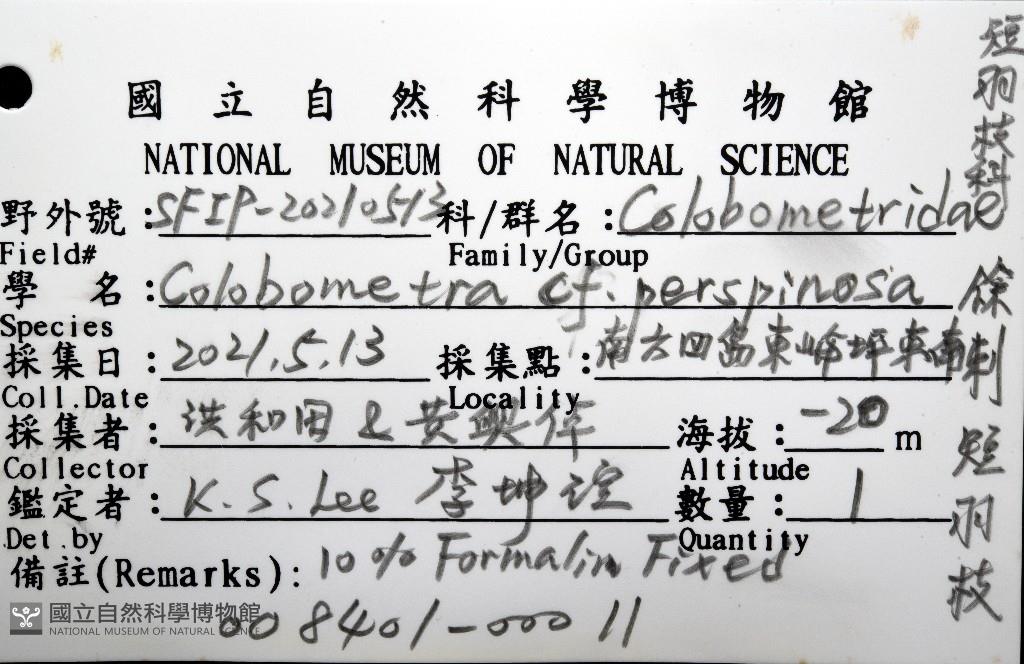 國立自然科學博物館
NATIONAL MUSEUM OF NATURAL SCIENCE
短羽枝科
野外號:SFIP-20210513 科/群名:Colobometridae
Field# Family/Group
學 名:Colobometra cf. perspinosa
Species
採集日:2021.5.13 採集點:南方四島東嶼坪東南
Coll.Date Locality
採集者:洪和田 & 黃興倬 海拔:-20 m
Collector Altitude
鑑定者:K.S. Lee 李坤瑄 數量:1
Det.by Quantity
備註(Remarks):10% Formalin Fixed
008401-00011
刺短羽枝
國立自然科學博物館
NATIONAL MUSEUM OF NATURAL SCIENCE